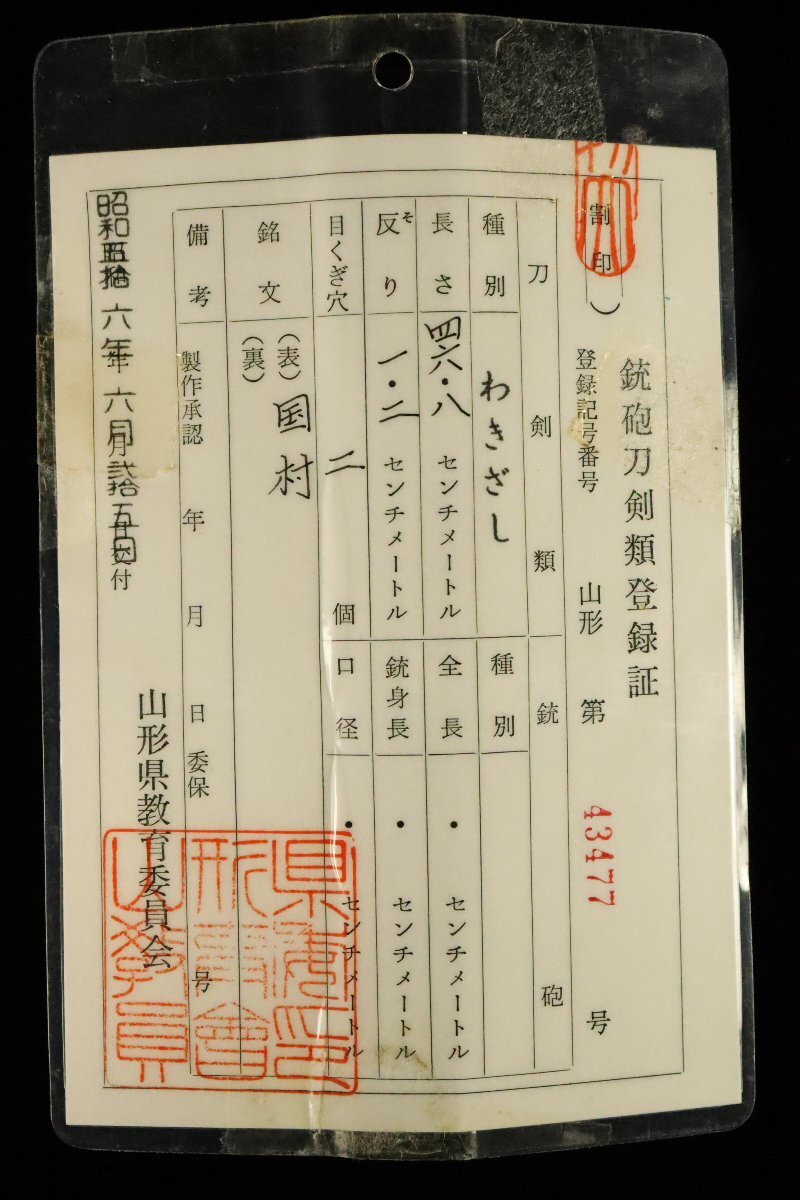 銃砲刀剣類登録証
割印
登録記号番号 山形 第 43477 号
刀剣類
種別 わきざし
長さ 四六・八 センチメートル
反り そ 一・二 センチメートル
目くぎ穴 二 個
銘文 (表) 国村
(裏)
銃砲
種別
全長 ・ センチメートル
銃身長 ・ センチメートル
口径 ・ センチメートル
備考 製作承認 年 月 日 委保 号
昭和五拾六年六月弐拾五日交付
山形県教育委員会
山形県教育委員會印